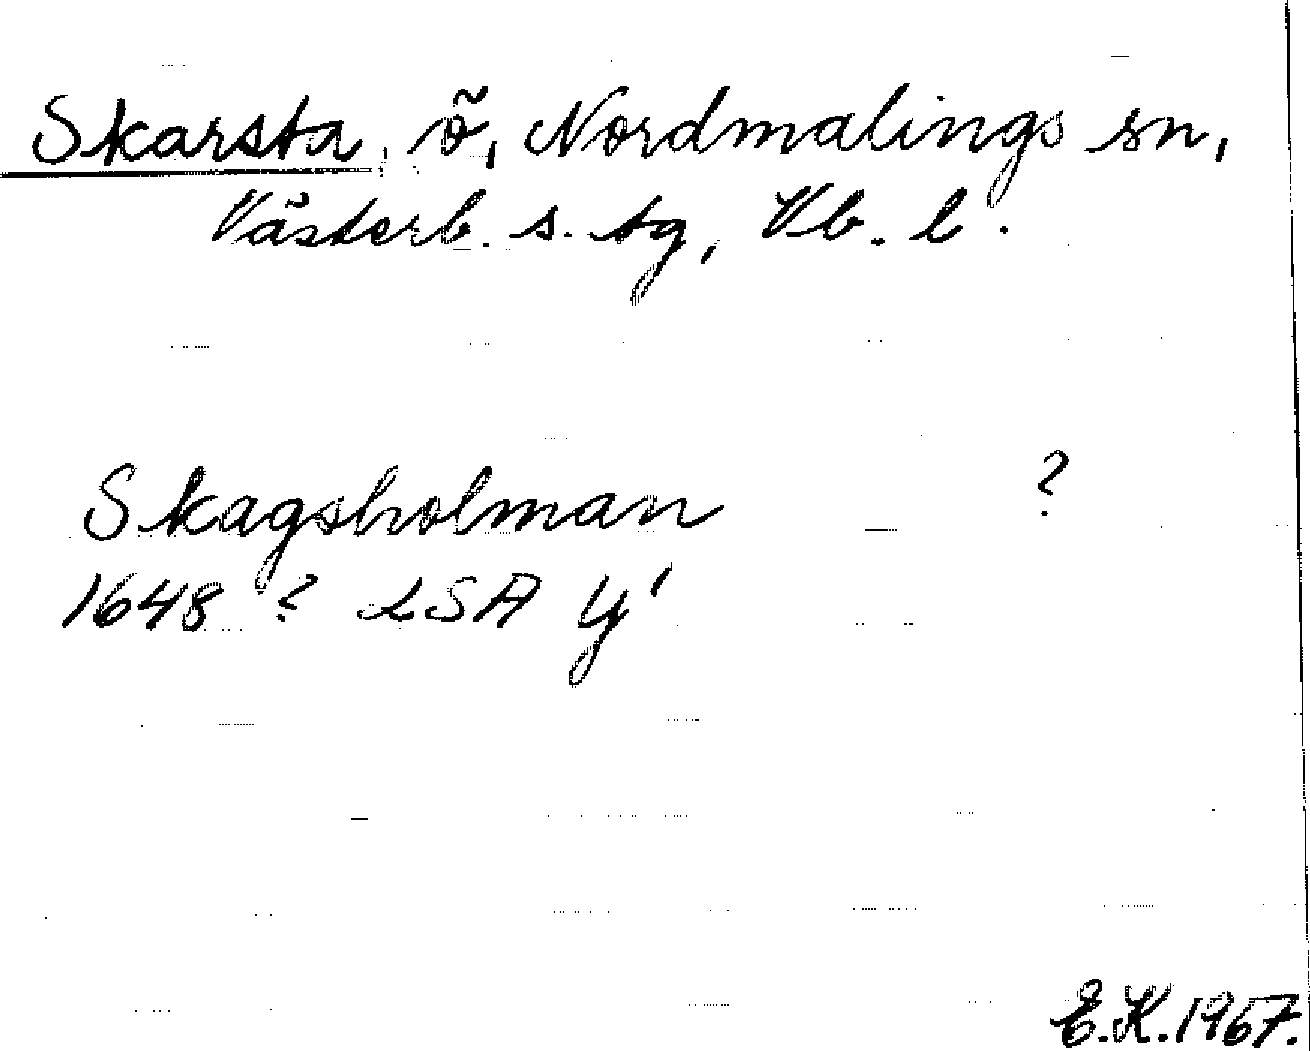 Skarsta, ö, Nordmalings sn,
Västerb. s. tg, Vb. l.
Skagsholman ?
1648 ? LSA Y'
E.K. 1967.